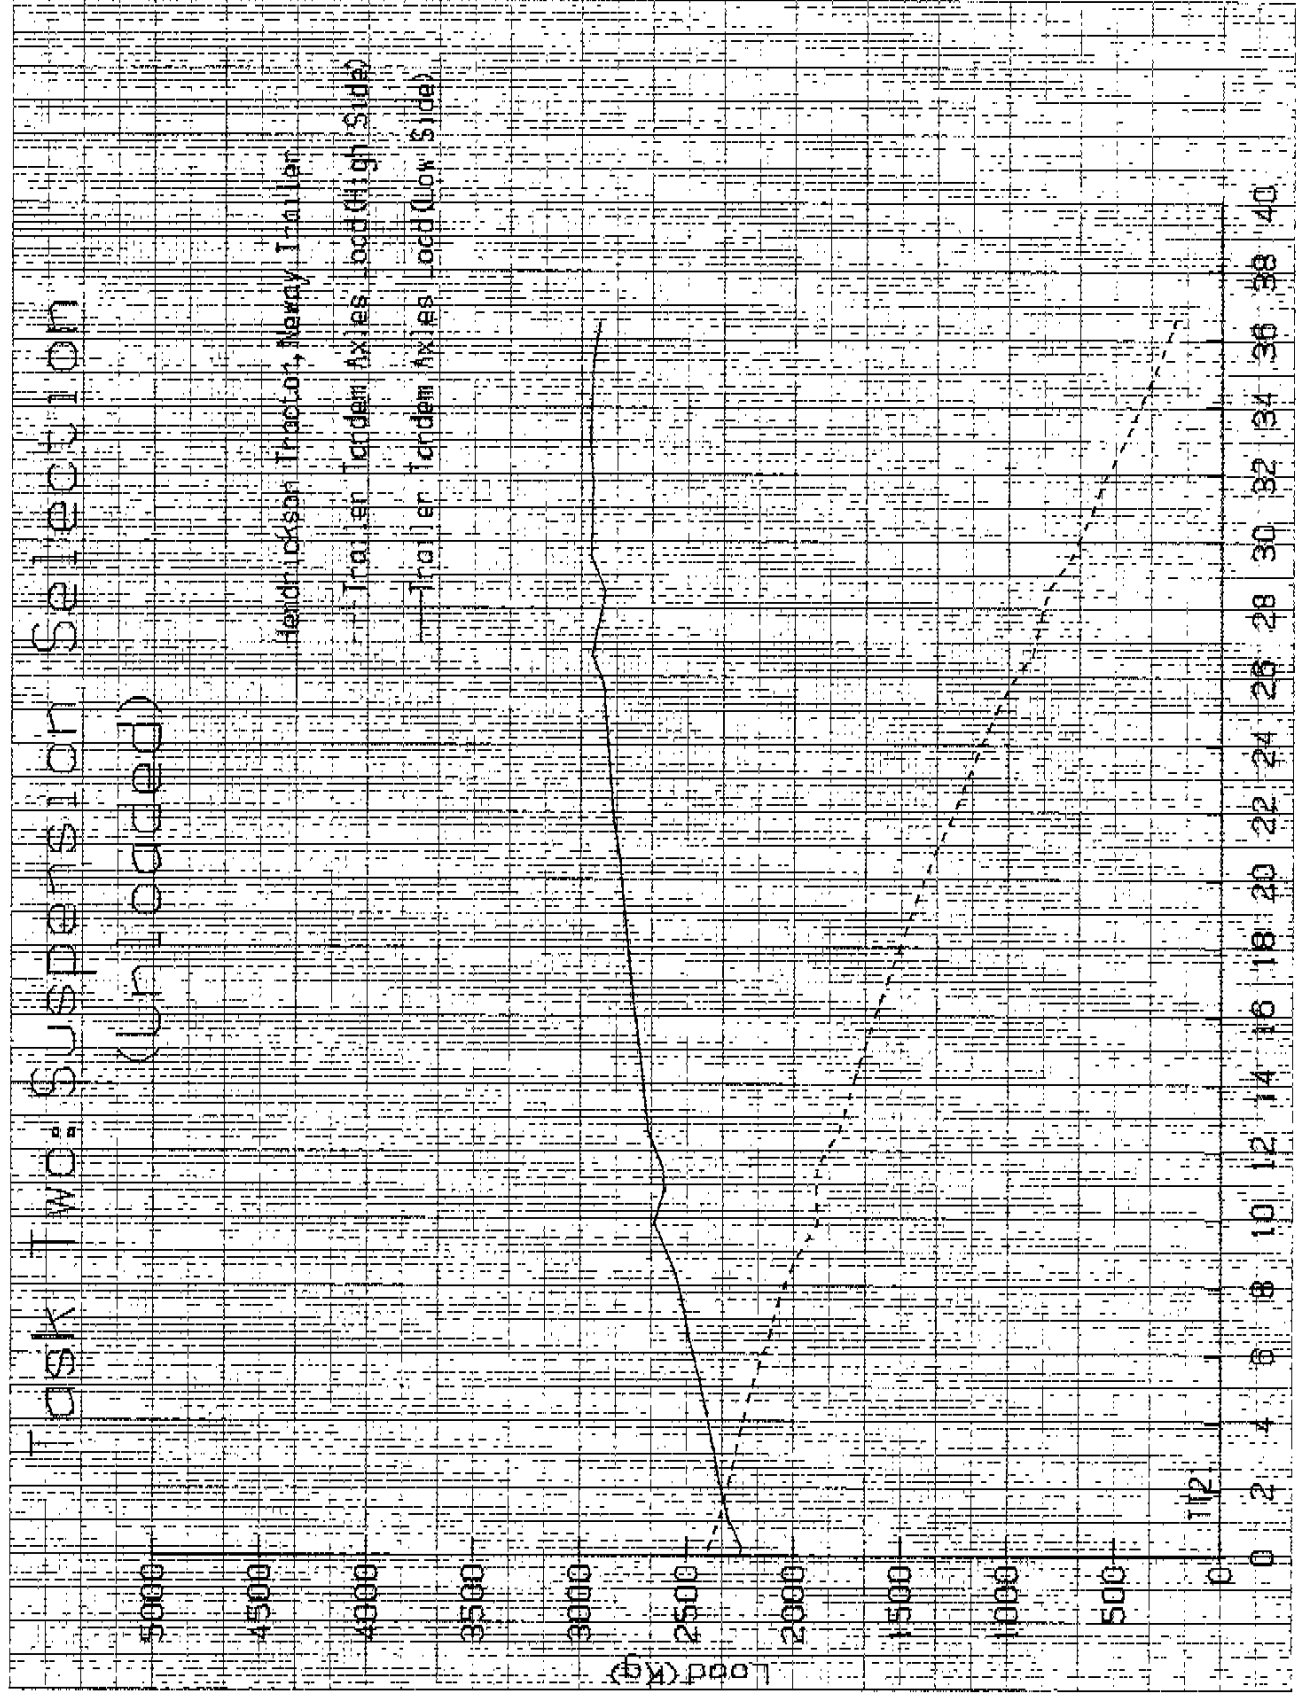 Task Two: Suspension Selection
(Unloaded)
Hendrickson Tractor, Neway Trailer
Trailer Tandem Axles Load (High Side)
Trailer Tandem Axles Load (Low Side)
Load (Kg)
5000
4500
4000
3500
3000
2500
2000
1500
1000
500
0
0 2 4 6 8 10 12 14 16 18 20 22 24 26 28 30 32 34 36 38 40